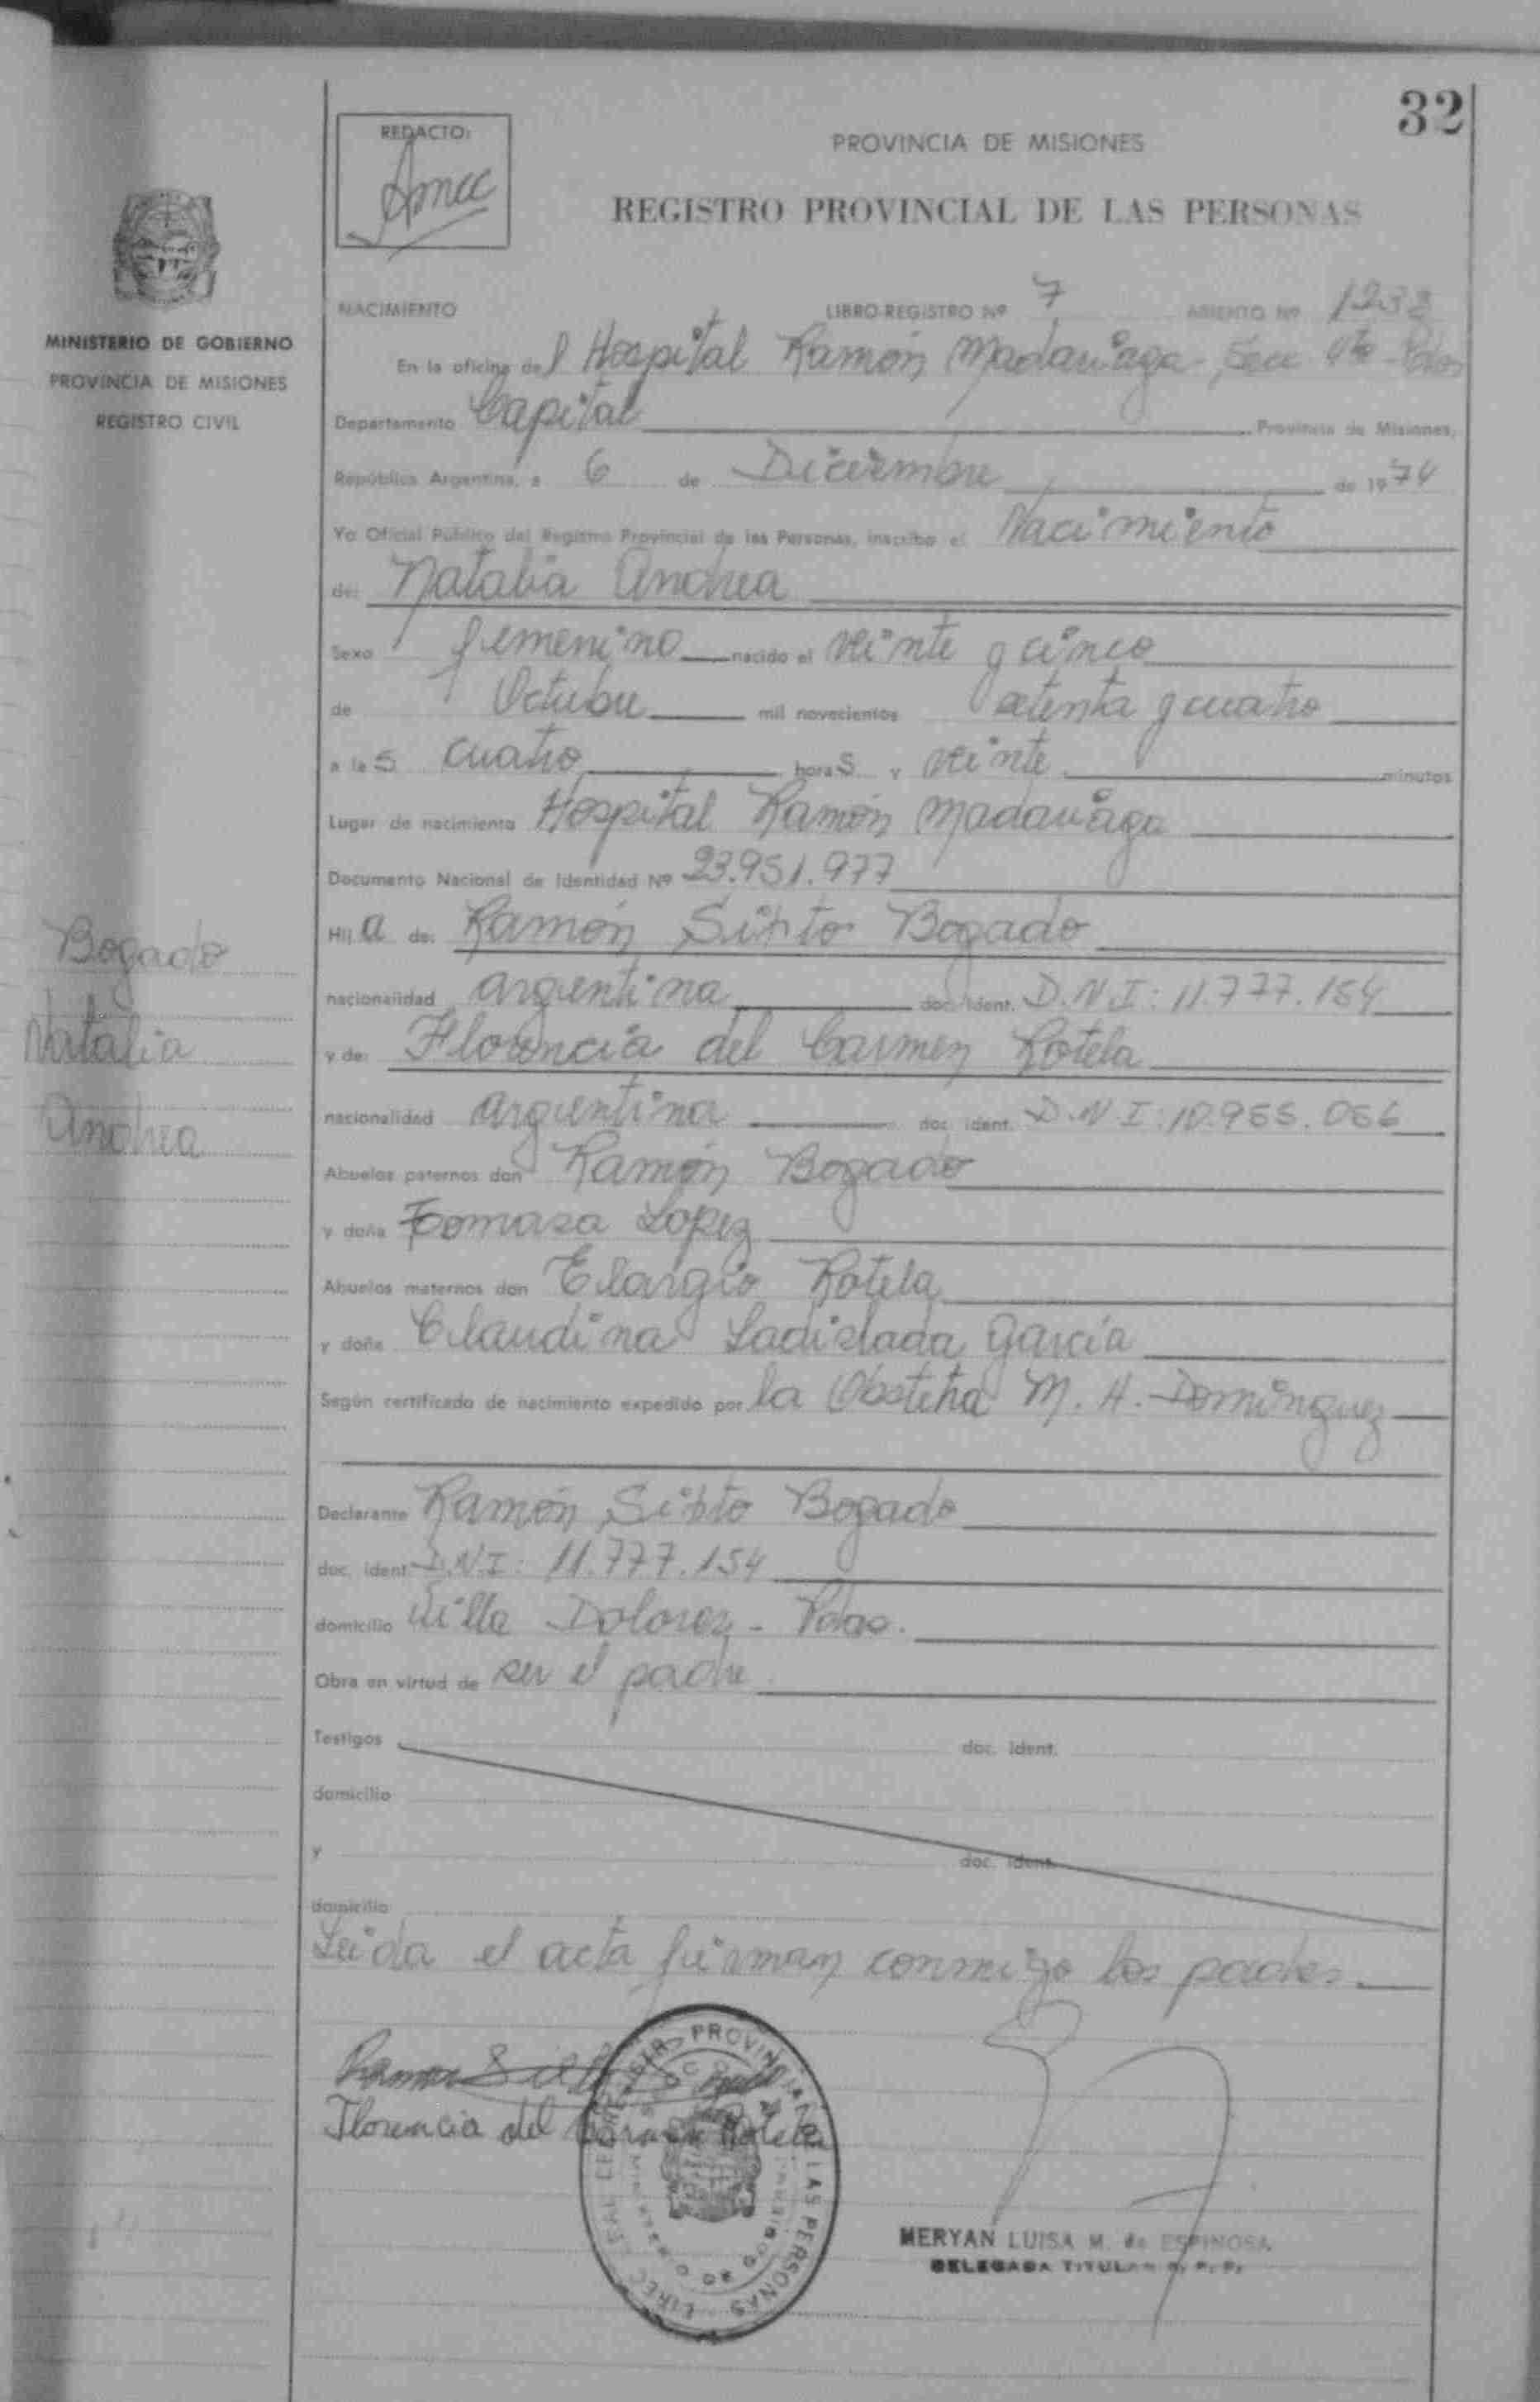 32
REDACTO:
PROVINCIA DE MISIONES
REGISTRO PROVINCIAL DE LAS PERSONAS
MINISTERIO DE GOBIERNO
PROVINCIA DE MISIONES
REGISTRO CIVIL
NACIMIENTO LIBRO-REGISTRO Nº 7 ASIENTO Nº 1238
En la oficina del Hospital Ramón Madariaga, Secc 4ta Pdas
Departamento Capital Provincia de Misiones,
República Argentina, a 6 de Diciembre de 1974
Yo Oficial Público del Registro Provincial de las Personas, inscribo el Nacimiento
de: Natalia Andrea
Sexo femenino nacido el veinte y cinco
de Octubre mil novecientos setenta y cuatro
a las cuatro horas y veinte minutos
Lugar de nacimiento Hospital Ramón Madariaga
Documento Nacional de Identidad Nº 23.951.977
Hija de: Ramón Sixto Bogado
nacionalidad argentina doc. ident. D.N.I: 11.777.154
y de: Florencia del Carmen Rotela
nacionalidad argentina doc. ident. D.N.I: 10.955.056
Abuelos paternos don Ramón Bogado
y doña Tomasa Lopez
Abuelos maternos don Elargio Rotela
y doña Claudina Ladislada García
Según certificado de nacimiento expedido por la Obstetra M. H. Dominguez
Declarante Ramón Sixto Bogado
doc. ident D.N.I: 11.777.154
domicilio Villa Dolores - Pdas.
Obra en virtud de ser el padre
Testigos doc. ident.
domicilio
y doc. ident.
domicilio
Leida el acta firman conmigo los padres.
Bogado
Natalia
Andrea
Florencia del Carmen Rotela
MERYAN LUISA M. de ESPINOSA
DELEGADA TITULAR R. P. P.